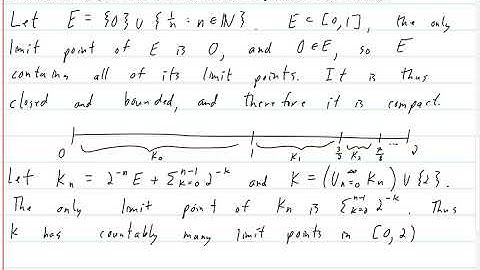 Let E = {0} ∪ {1/n : n ∈ ℕ}. E ⊂ [0,1], the only
limit point of E is 0, and 0∈E, so E
contains all of its limit points. It is thus
closed and bounded, and therefore it is compact.
0 K₀ 1 K₁ 3/2 K₂ 7/4 ... 2
Let Kₙ = 2⁻ⁿ E + Σₖ₌₀ⁿ⁻¹ 2⁻ᵏ and K = (∪ₙ₌₀^∞ Kₙ) ∪ {2}.
The only limit point of Kₙ is Σₖ₌₀ⁿ⁻¹ 2⁻ᵏ. Thus
K has countably many limit points in [0,2)